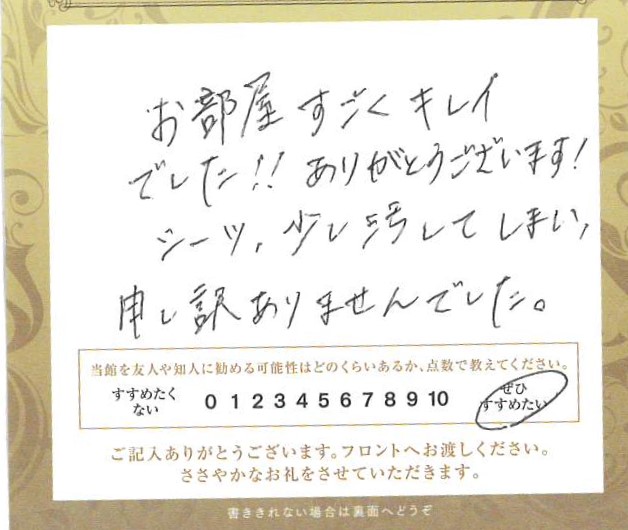 お部屋すごくキレイ
でした!!ありがとうございます!
シーツ、少し汚してしまい、
申し訳ありませんでした。
当館を友人や知人に勧める可能性はどのくらいあるか、点数で教えてください。
すすめたく
ない
0 1 2 3 4 5 6 7 8 9 10
ぜひ
すすめたい
ご記入ありがとうございます。フロントへお渡しください。
ささやかなお礼をさせていただきます。
書ききれない場合は裏面へどうぞ